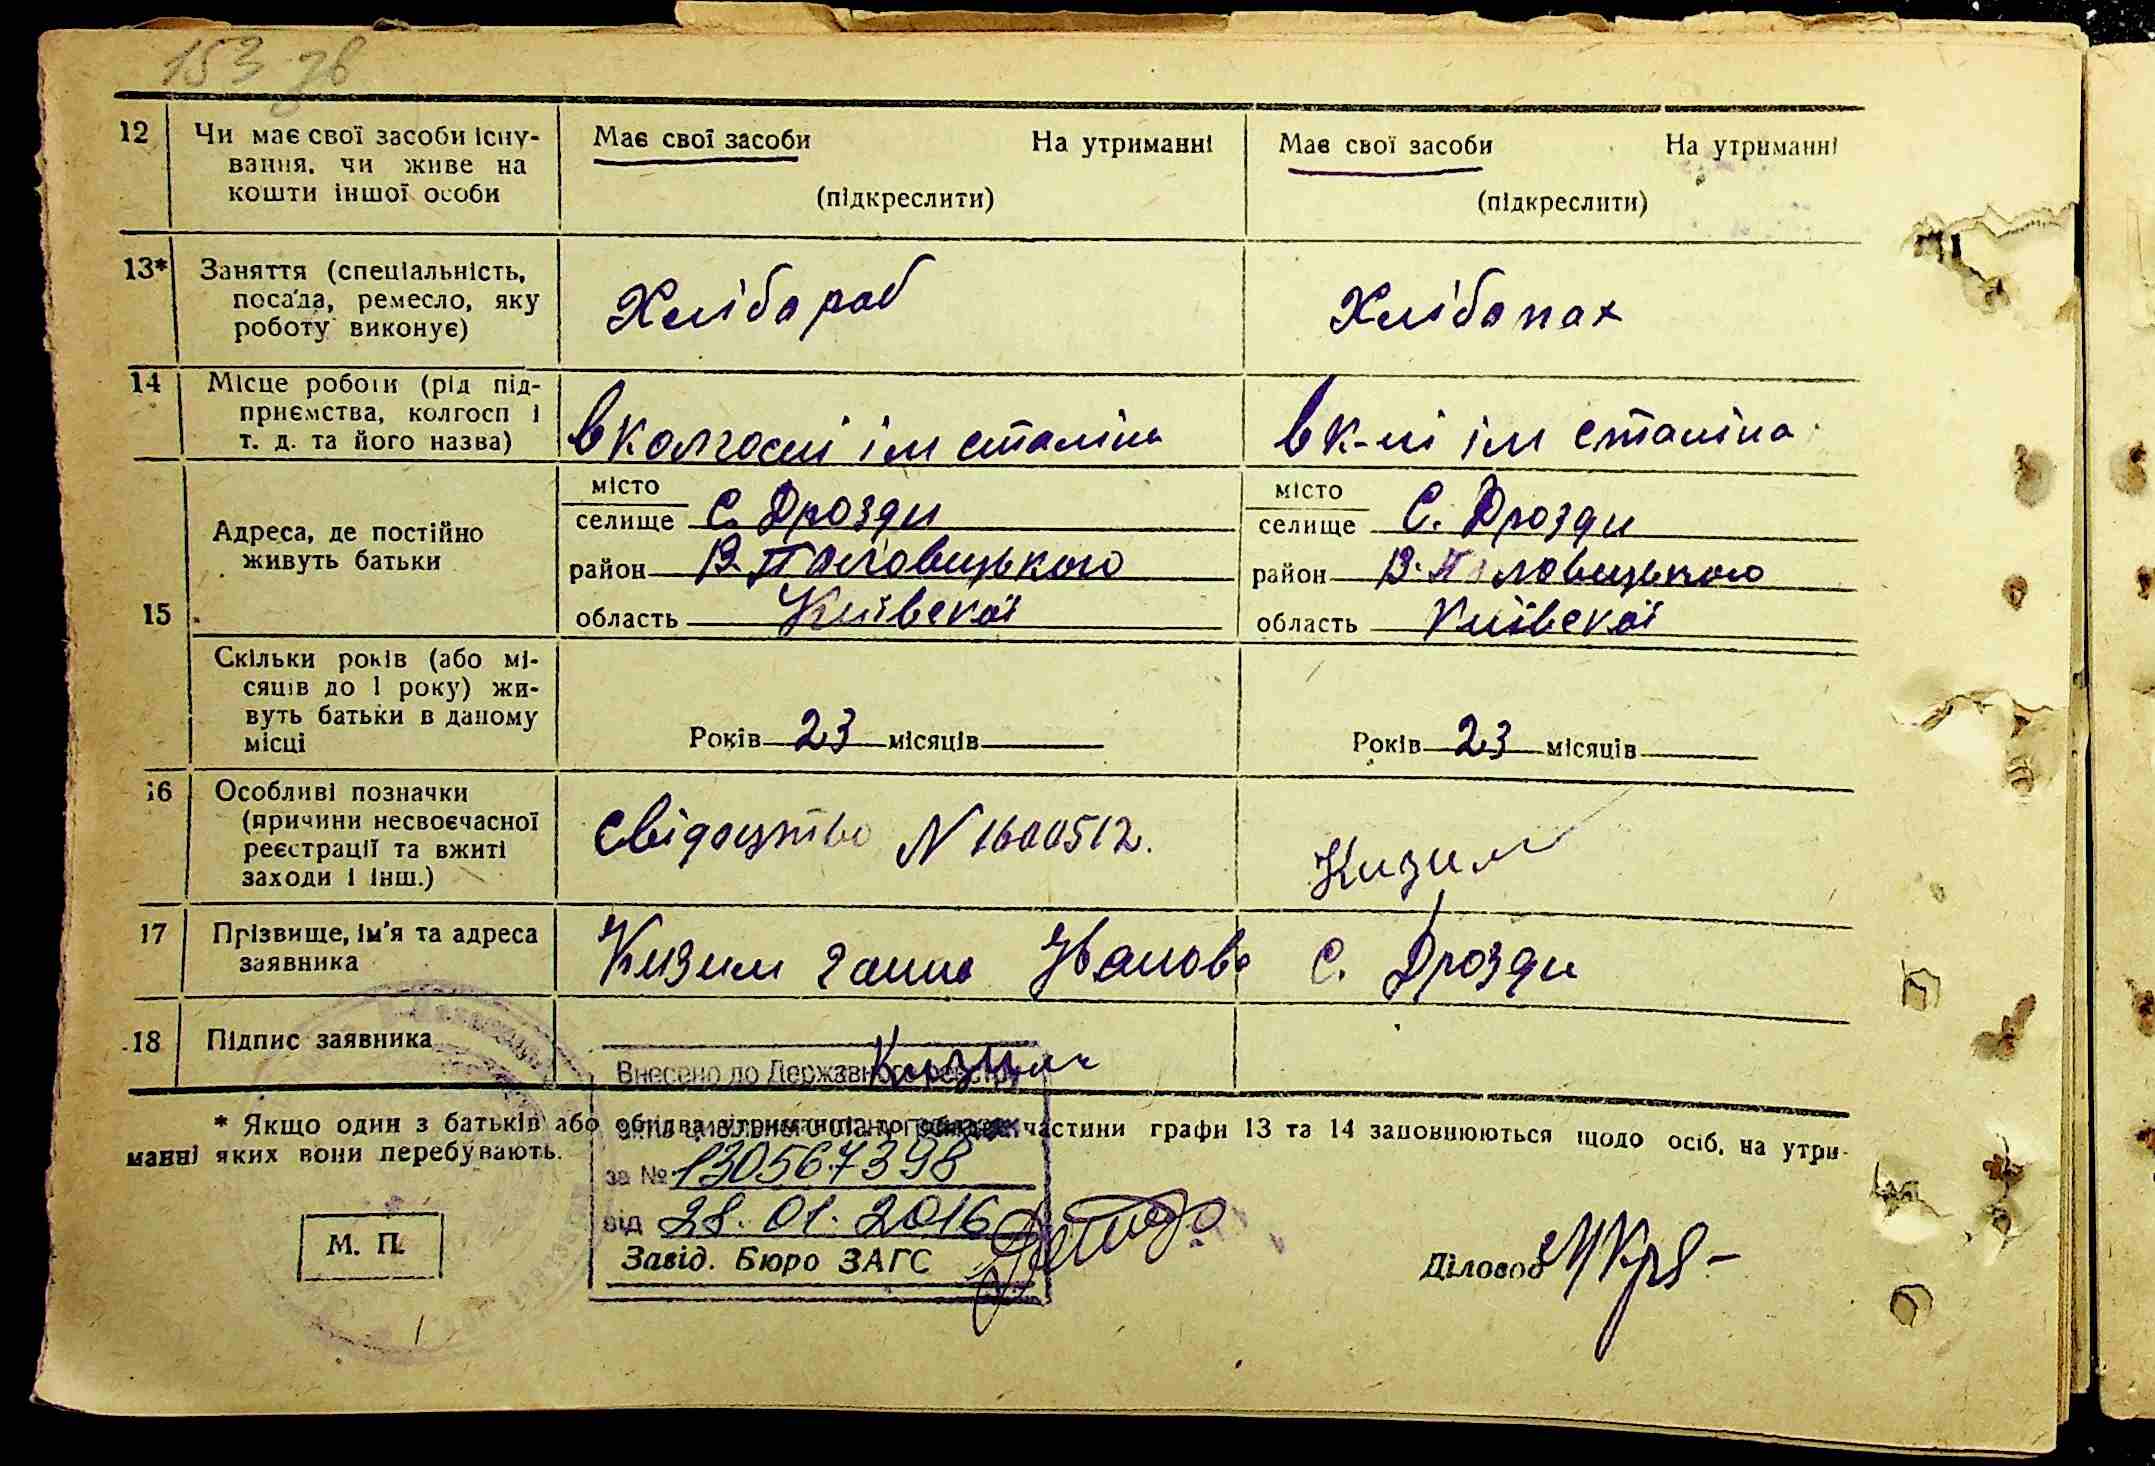 153 зв
12 Чи має свої засоби існу- Має свої засоби На утриманні Має свої засоби На утриманні
вання, чи живе на
кошти іншої особи (підкреслити) (підкреслити)
13* Заняття (спеціальність,
посада, ремесло, яку Хлібороб Хлібопах
роботу виконує)
14 Місце роботи (рід під-
приємства, колгосп і
т. д. та його назва) в колгоспі ім сталіна в к-пі ім сталіна
15 Адреса, де постійно
живуть батьки
місто місто
селище С. Дрозди селище С. Дрозди
район В. Половецького район В. Половецького
область Київскої область Київскої
Скільки років (або мі-
сяців до 1 року) жи-
вуть батьки в даному Років 23 місяців Років 23 місяців
місці
16 Особливі позначки
(причини несвоєчасної Свідоцтво N 1600512. Кизим
реєстрації та вжиті
заходи і інш.)
17 Прізвище, ім'я та адреса Кизим Ганна Іванова С. Дрозди
заявника
18 Підпис заявника Кизим
Внесено до Державного реєстру
* Якщо один з батьків або обидва частини графи 13 та 14 заповнюються щодо осіб, на утри-
манні яких вони перебувають.
за № 130567398
від 28.01.2016
М. П. Завід. Бюро ЗАГС Діловод